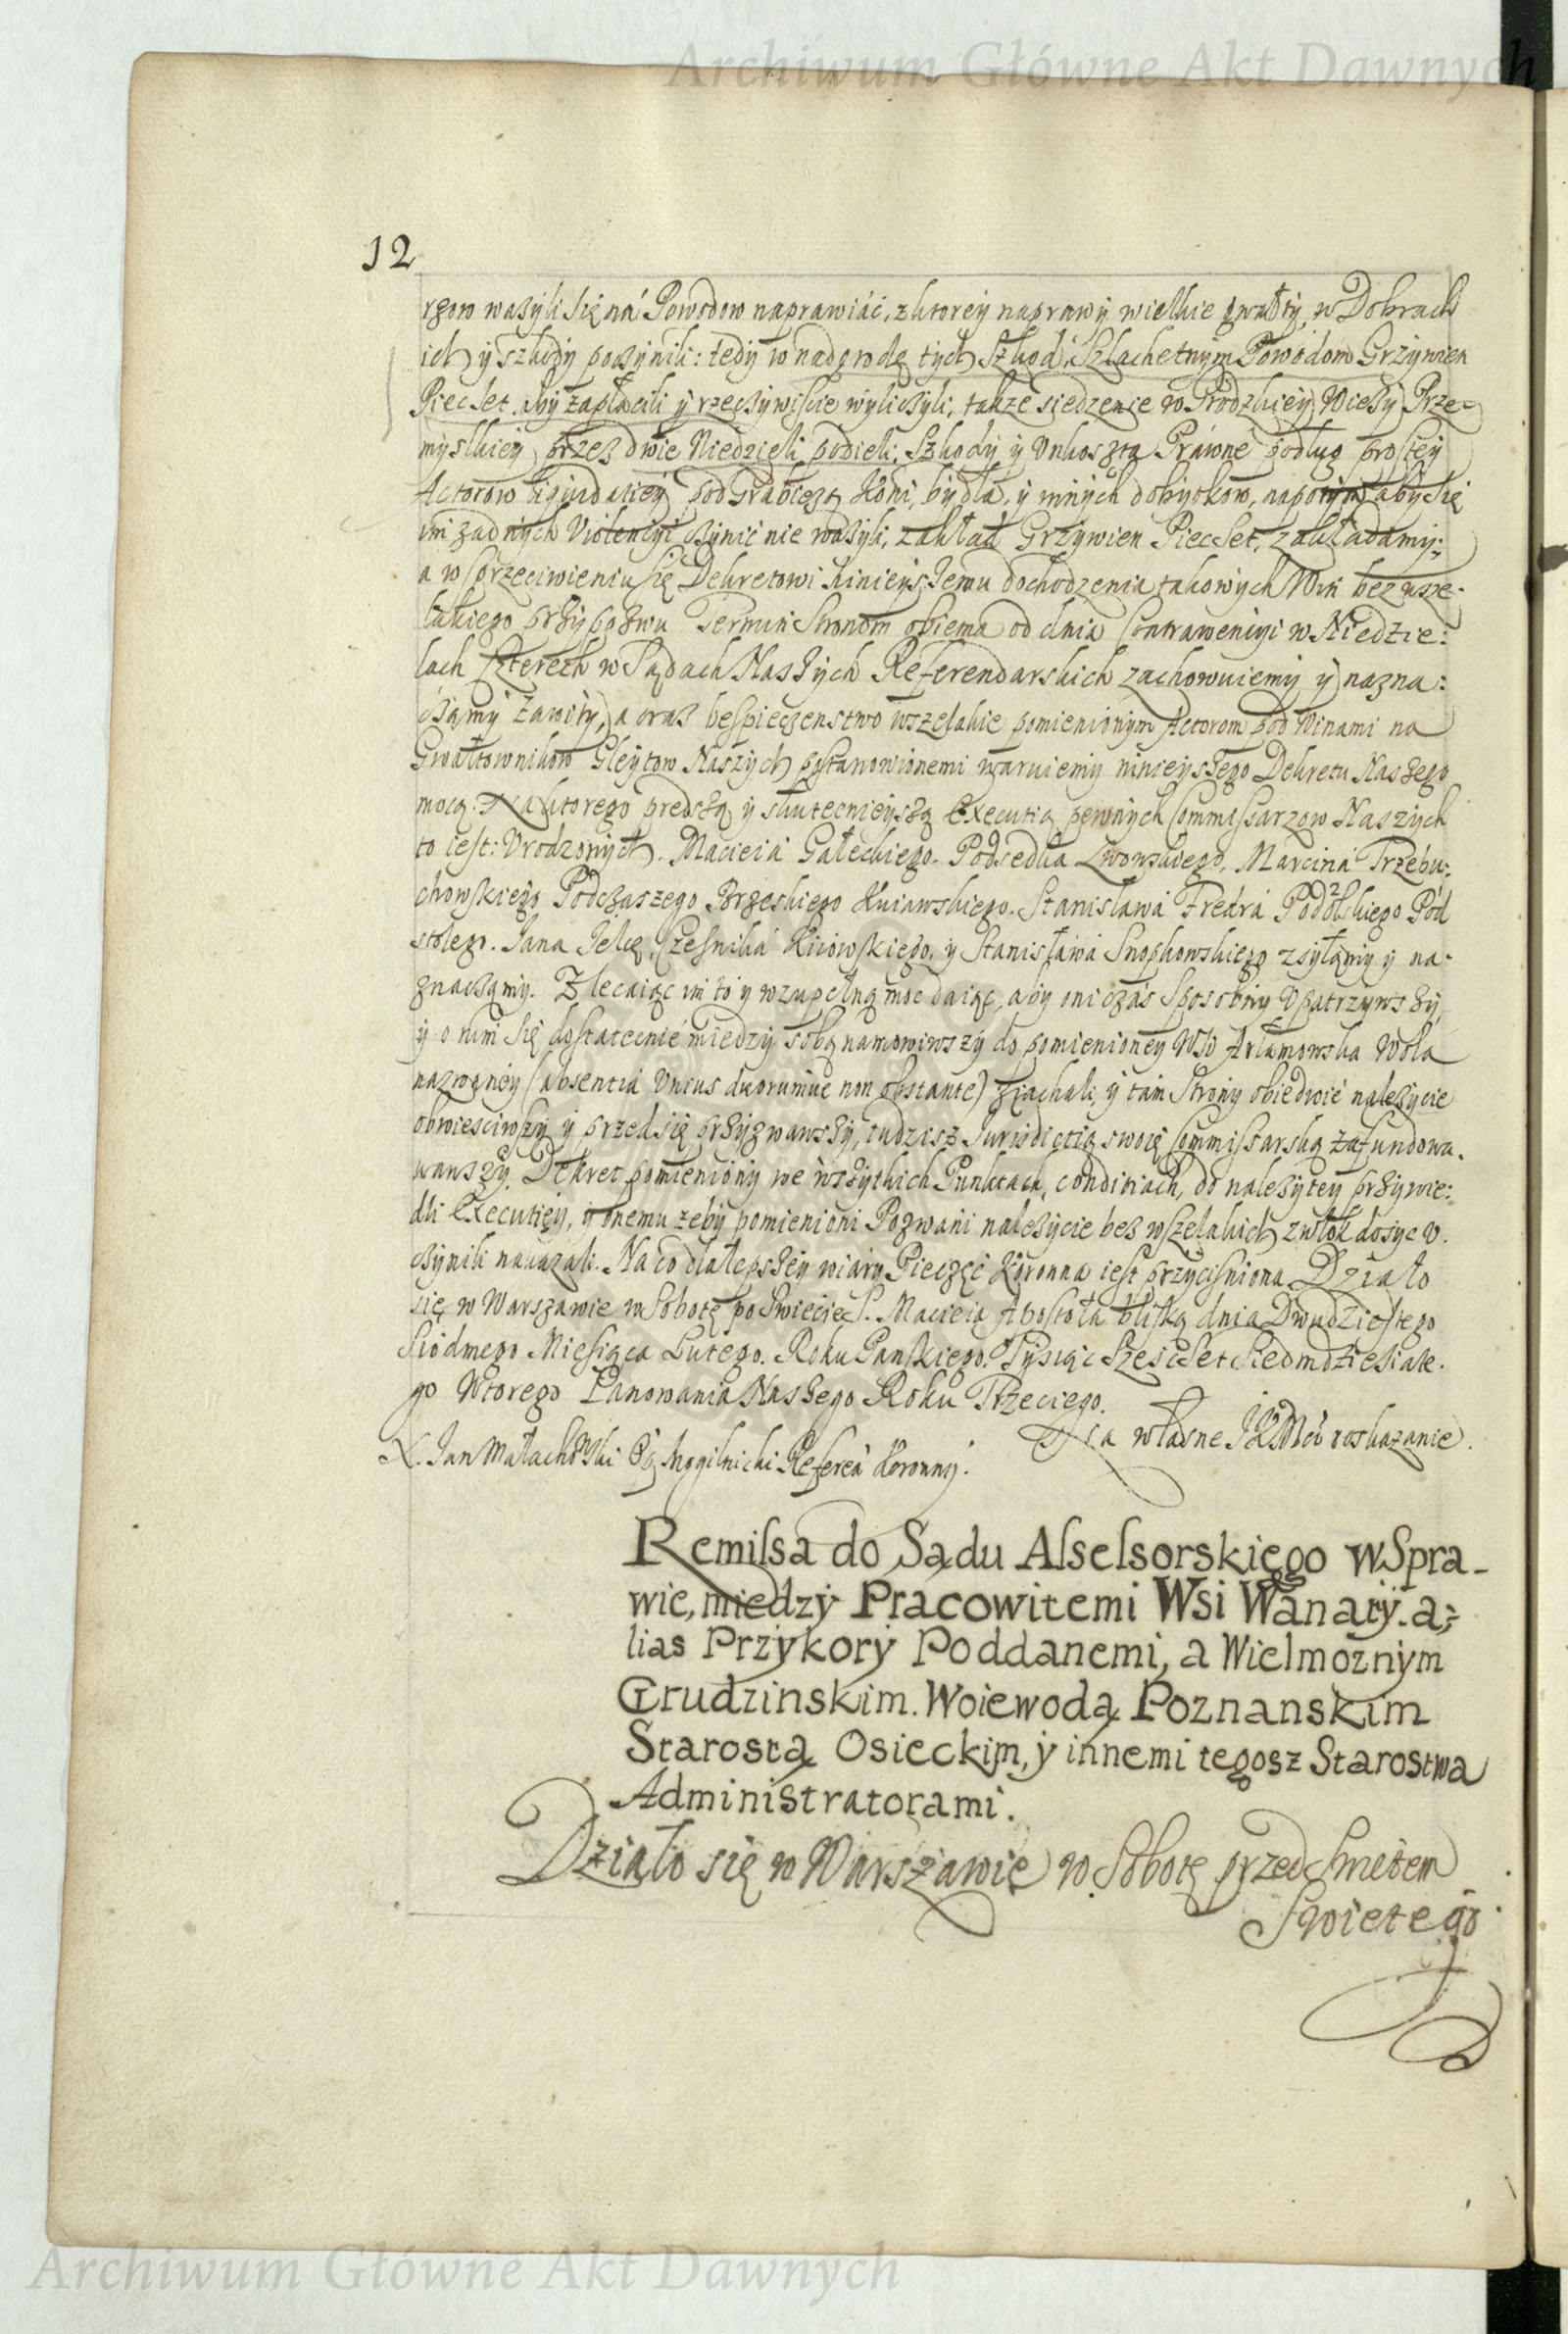 Archiwum Główne Akt Dawnych
12
rgow ważyli się ná Powodow naprawiáć, z ktorey naprawy wielkie gwałty, w Dobrach
ich y szkody poczynili: tedy w nadgrodę tych Szkod, Szlachetnym Powodom Grzywien
Piecset, aby zapłacili y rzeczywiscie wyliczyli, także siedzenie w Grodzkiey Wieży Prze-
myslkiey przez dwie Niedzieli podieli; Szkody y Unkoszta Práwne podług prostey
Actorow liquidatiey pod Grabieżą Koni, bydła, y innych dobytkow, napotym aby się
im żadnych Violencyi czynić nie ważyli, zakład Grzywien Piecset, zakładamy;
a w sprzeciwieniu się Dekretowi ninieyszemu dochodzenia takowych Win bez wsze-
lakiego przypozwu Termin Stronom obiema od dnia contravencyi w Niedzie:
lach czterech w Sądach Naszych Referendarskich zachowuiemy y nazna:
czamy zawity, a oraz bespieczenstwo wszelakie pomienionym Actorom pod Winami na
Gwałtownikow Gleytow Naszych postanowionemi waruiemy ninieyszego Dekretu Naszego
mocą. Na ktorego predszą y skutecnieyszą Executią pewnych Commissarzow Naszych
to iest: Urodzonych. Macieiá Gałeckiego. Podsedka Lwowskiego, Marciná Trzebu:
chowskiego Podczaszego Brzeskiego Kuiawskiego. Stanisláwá Fredrá Podolskiego Pod
stolego. Jana Jelcę, Cześniká Kiiowskiego, y Stanisławá Snopkowskiego zsyłamy y na-
znaczamy. Zlecaiąc im to y wzupełną moc daiąc, aby oni czas sposobny upatrzywszy
y o nim się dostatecnie miedzy sobą namowiwszy do pomienioney Wsi Artamowska Wola
nazwaney (absentia unius duorumve non obstante) ziachali, y tam Strony obiedwie należycie
obwiesciwszy y przed się przyzwawszy, tudzisz Jurisdictią swoię Commissarską zafundowa.
wawszy. Dekret pomieniony we wszytkich Punktach, conditiach, do należytey przywie:
dli Executiey, y onemu żeby pomienioni Pozwani należycie bez wszelakich zwłok dosyc u.
czynili nakazali. Na co dla lepszey wiary Pieczęć Koronna iest przycisniona. Działo
się w Warszawie w Sobotę po Swięcie S. Macieia Apostoła bliską dnia Dwudziestego
Siodmego Miesiąca Lutego. Roku Pańskiego. Tysiąc Szescset Siedmdziesiate-
go Wtorego Panowania Naszego Roku Trzeciego.
Na własne JKMći roskazanie.
X. Jan Małachowski Op. Mogilnicki Referen Koronny.
Remissa do Sądu Assessorskiego w Spra-
wie, miedzy Pracowitemi Wsi Wanaty. a;
lias Przykory Poddanemi, a Wielmożnym
Grudzinskim. Woiewodą Poznanskim
Starostą Osieckim, y innemi tegosz Starostwa
Administratorami.
Działo się w Warszawie w Sobotę przed Swietem
Swietego
Archiwum Główne Akt Dawnych